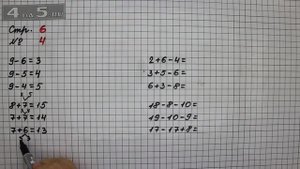 4 на 5.ru
Стр. 6
№ 4
9-6=3
9-5=4
9-4=5
8+7=15
7+7=14
7+6=13
2+6-4=
3+5-6=
6+3-8=
18-8-10=
19-10-9=
17-17+8=